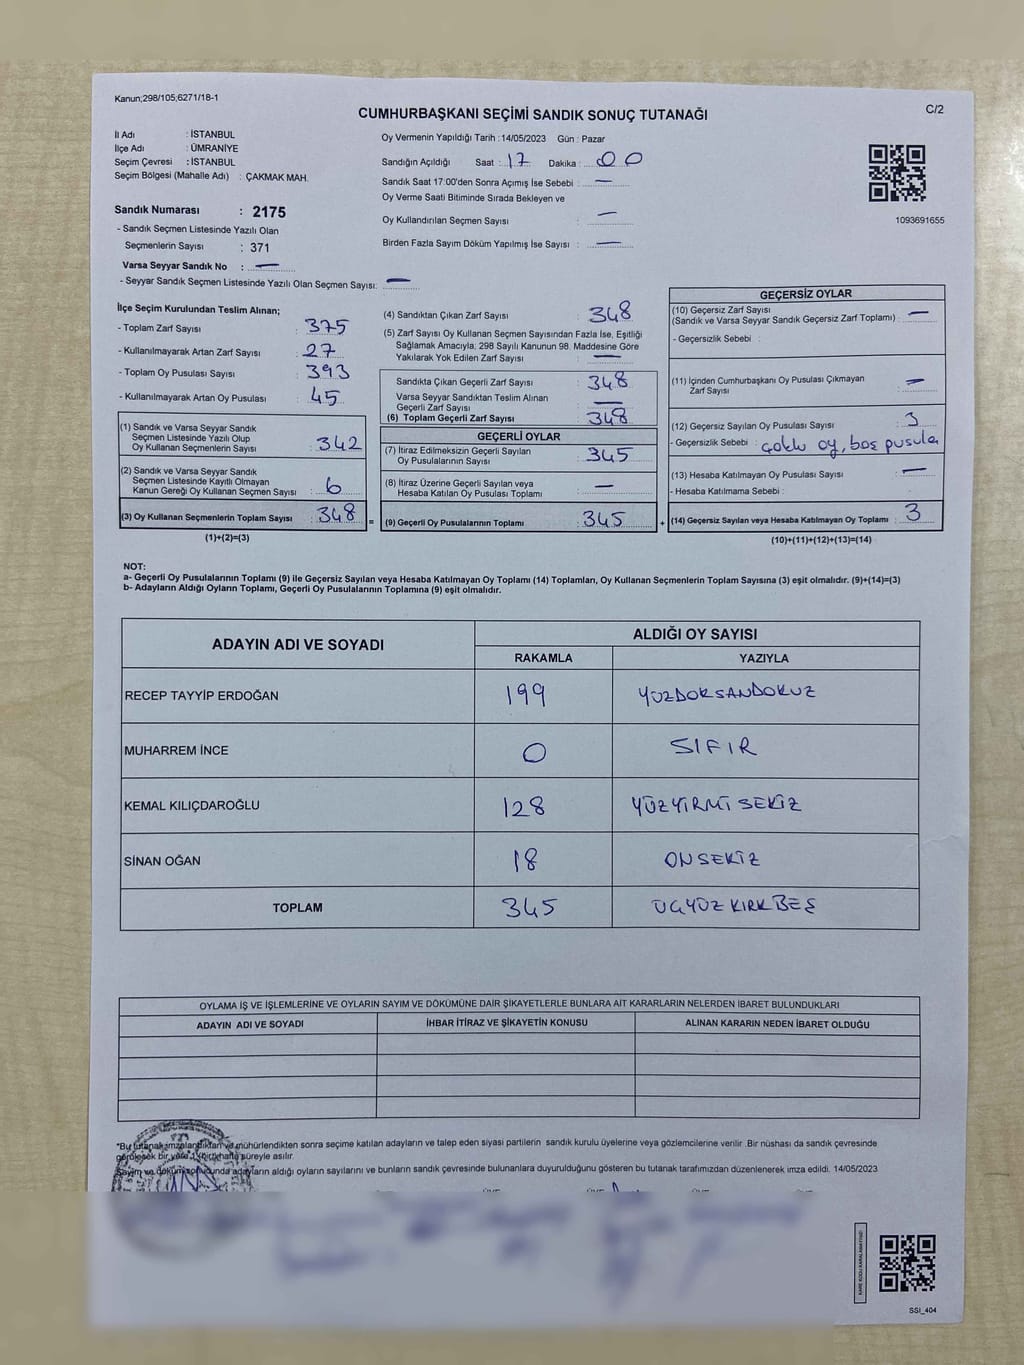 Kanun;298/105;6271/18-1
C/2
CUMHURBAŞKANI SEÇİMİ SANDIK SONUÇ TUTANAĞI
İl Adı : İSTANBUL
İlçe Adı : ÜMRANİYE
Seçim Çevresi : İSTANBUL
Seçim Bölgesi (Mahalle Adı) : ÇAKMAK MAH.
Sandık Numarası : 2175
- Sandık Seçmen Listesinde Yazılı Olan
Seçmenlerin Sayısı : 371
Varsa Seyyar Sandık No : —
- Seyyar Sandık Seçmen Listesinde Yazılı Olan Seçmen Sayısı: —
Oy Vermenin Yapıldığı Tarih : 14/05/2023 Gün : Pazar
Sandığın Açıldığı Saat : 17 Dakika : 00
Sandık Saat 17:00'den Sonra Açımış İse Sebebi : —
Oy Verme Saati Bitiminde Sırada Bekleyen ve
Oy Kullandırılan Seçmen Sayısı : —
Birden Fazla Sayım Döküm Yapılmış İse Sayısı : —
1093691655
İlçe Seçim Kurulundan Teslim Alınan;
- Toplam Zarf Sayısı : 375
- Kullanılmayarak Artan Zarf Sayısı : 27
- Toplam Oy Pusulası Sayısı : 393
- Kullanılmayarak Artan Oy Pusulası : 45
(1) Sandık ve Varsa Seyyar Sandık
Seçmen Listesinde Yazılı Olup
Oy Kullanan Seçmenlerin Sayısı : 342
(2) Sandık ve Varsa Seyyar Sandık
Seçmen Listesinde Kayıtlı Olmayan
Kanun Gereği Oy Kullanan Seçmen Sayısı : 6
(3) Oy Kullanan Seçmenlerin Toplam Sayısı : 348
(1)+(2)=(3)
(4) Sandıktan Çıkan Zarf Sayısı : 348
(5) Zarf Sayısı Oy Kullanan Seçmen Sayısından Fazla İse, Eşitliği
Sağlamak Amacıyla; 298 Sayılı Kanunun 98. Maddesine Göre
Yakılarak Yok Edilen Zarf Sayısı : —
Sandıkta Çıkan Geçerli Zarf Sayısı : 348
Varsa Seyyar Sandıktan Teslim Alınan
Geçerli Zarf Sayısı : —
(6) Toplam Geçerli Zarf Sayısı : 348
GEÇERLİ OYLAR
(7) İtiraz Edilmeksizin Geçerli Sayılan
Oy Pusulalarının Sayısı : 345
(8) İtiraz Üzerine Geçerli Sayılan veya
Hesaba Katılan Oy Pusulası Toplamı : —
= (9) Geçerli Oy Pusulalarının Toplamı : 345
GEÇERSİZ OYLAR
(10) Geçersiz Zarf Sayısı
(Sandık ve Varsa Seyyar Sandık Geçersiz Zarf Toplamı) : —
- Geçersizlik Sebebi :
(11) İçinden Cumhurbaşkanı Oy Pusulası Çıkmayan
Zarf Sayısı : —
(12) Geçersiz Sayılan Oy Pusulası Sayısı : 3
- Geçersizlik Sebebi : çoklu oy, boş pusula
(13) Hesaba Katılmayan Oy Pusulası Sayısı : —
- Hesaba Katılmama Sebebi :
+ (14) Geçersiz Sayılan veya Hesaba Katılmayan Oy Toplamı : 3
(10)+(11)+(12)+(13)=(14)
NOT:
a- Geçerli Oy Pusulalarının Toplamı (9) ile Geçersiz Sayılan veya Hesaba Katılmayan Oy Toplamı (14) Toplamları, Oy Kullanan Seçmenlerin Toplam Sayısına (3) eşit olmalıdır. (9)+(14)=(3)
b- Adayların Aldığı Oyların Toplamı, Geçerli Oy Pusulalarının Toplamına (9) eşit olmalıdır.
ADAYIN ADI VE SOYADI ALDIĞI OY SAYISI
RAKAMLA YAZIYLA
RECEP TAYYİP ERDOĞAN 199 YÜZDOKSANDOKUZ
MUHARREM İNCE 0 SIFIR
KEMAL KILIÇDAROĞLU 128 YÜZYİRMİ SEKİZ
SİNAN OĞAN 18 ONSEKİZ
TOPLAM 345 ÜÇYÜZ KIRK BEŞ
OYLAMA İŞ VE İŞLEMLERİNE VE OYLARIN SAYIM VE DÖKÜMÜNE DAİR ŞİKAYETLERLE BUNLARA AİT KARARLARIN NELERDEN İBARET BULUNDUKLARI
ADAYIN ADI VE SOYADI İHBAR İTİRAZ VE ŞİKAYETİN KONUSU ALINAN KARARIN NEDEN İBARET OLDUĞU
*Bu tutanak imzalandıktan ve mühürlendikten sonra seçime katılan adayların ve talep eden siyasi partilerin sandık kurulu üyelerine veya gözlemcilerine verilir. Bir nüshası da sandık çevresinde
görülecek bir yere bir hafta süreyle asılır.
Sayım ve döküm sonucunda adayların aldığı oyların sayılarını ve bunların sandık çevresinde bulunanlara duyurulduğunu gösteren bu tutanak tarafımızdan düzenlenerek imza edildi. 14/05/2023
SSİ_404